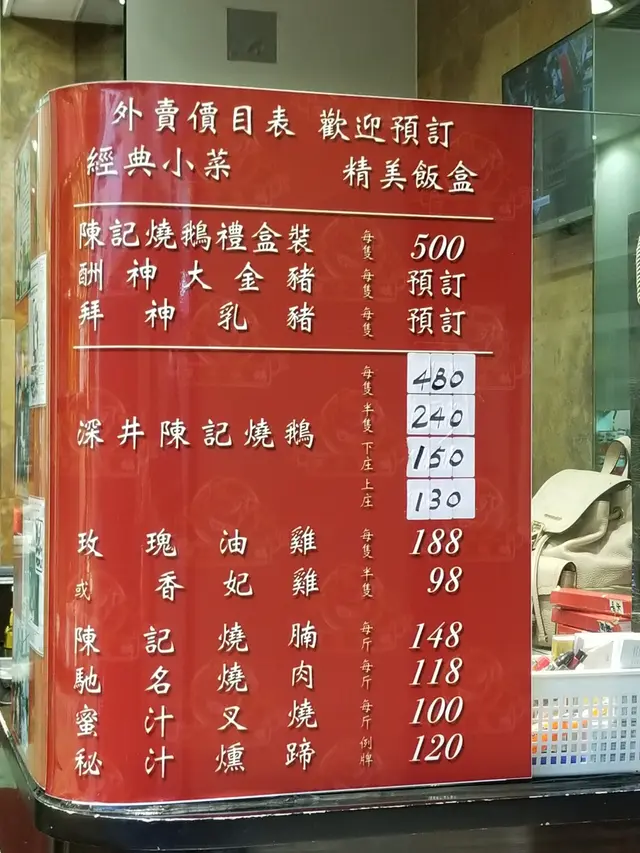 外賣價目表 歡迎預訂
經典小菜 精美飯盒
陳記燒鵝禮盒裝 每隻 500
酬神大金豬 每隻 預訂
拜神乳豬 每隻 預訂
深井陳記燒鵝 每隻 480
半隻 240
下庄 150
上庄 130
玫瑰油雞 每隻 188
或香妃雞 半隻 98
陳記燒腩 每斤 148
馳名燒肉 每斤 118
蜜汁叉燒 每斤 100
秘汁燻蹄 例牌 120